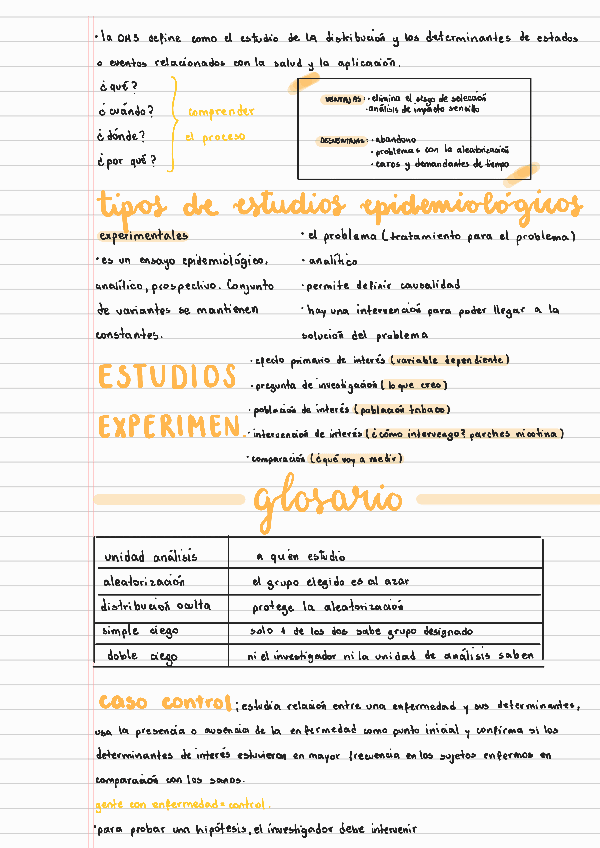 · la OMS define como el estudio de la distribución y los determinantes de estados
o eventos relacionados con la salud y la aplicación.
¿qué?
¿cuándo?
¿dónde?
¿por qué?
comprender
el proceso
VENTAJAS: · elimina el sesgo de selección
· análisis de impacto sencillo
DESVENTAJAS: · abandono
· problemas con la aleatorización
· caros y demandantes de tiempo
tipos de estudios epidemiológicos
experimentales
· es un ensayo epidemiológico,
analítico, prospectivo. Conjunto
de variantes se mantienen
constantes.
· el problema (tratamiento para el problema)
· analítico
· permite definir causalidad
· hay una intervención para poder llegar a la
solución del problema
ESTUDIOS
EXPERIMEN.
· efecto primario de interés (variable dependiente)
· pregunta de investigación (lo que creo)
· población de interés (población tabaco)
· intervención de interés (¿cómo intervengo? parches nicotina)
· comparación (¿qué voy a medir)
glosario
unidad análisis a quién estudio
aleatorización el grupo elegido es al azar
distribución oculta protege la aleatorización
simple ciego solo 1 de los dos sabe grupo designado
doble ciego ni el investigador ni la unidad de análisis saben
caso control: estudia relación entre una enfermedad y sus determinantes,
usa la presencia o ausencia de la enfermedad como punto inicial y confirma si los
determinantes de interés estuvieron en mayor frecuencia en los sujetos enfermos en
comparación con los sanos.
gente con enfermedad = control.
· para probar una hipótesis, el investigador debe intervenir